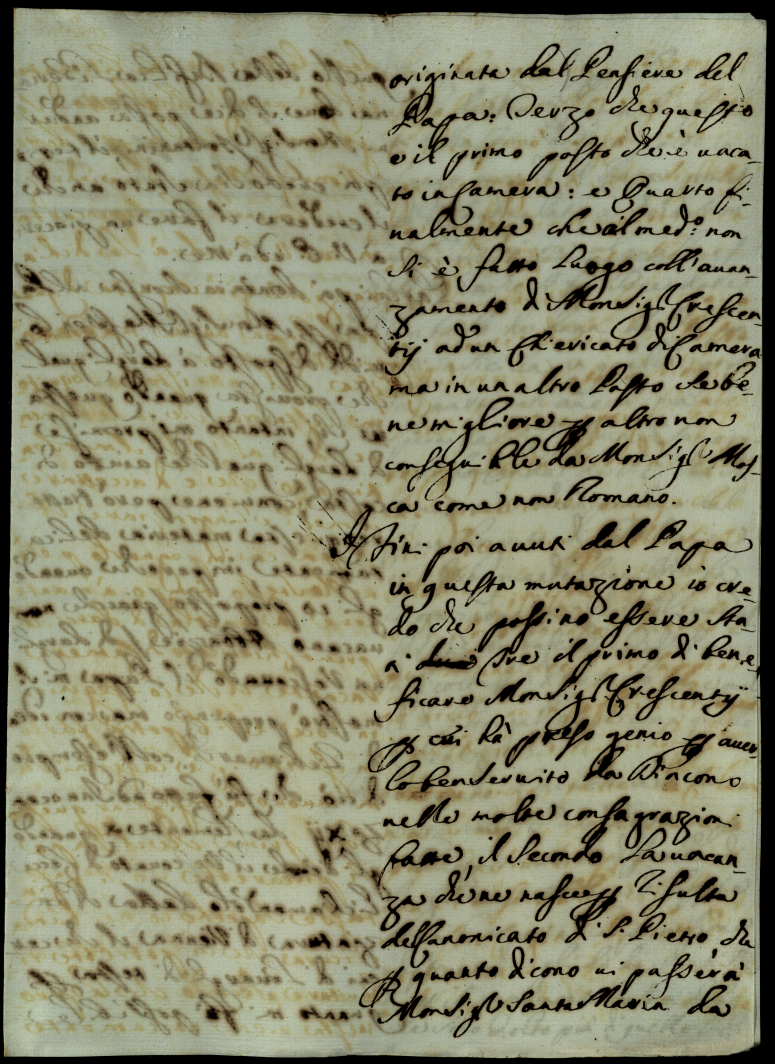 originata dal Pensiere del
Papa: Terzo che questo
e il primo posto che è vaca-
to in Camera: e Quarto fi-
nalmente che al med.º non
si è fatto Luogo coll'avan-
zamento di Monsig.r Crescen-
tij ad un Chiericato di Camera
ma in un altro Posto se be-
ne migliore p altro non
conseguibile da Monsig.r Mos-
ca come non Romano.
I Fini poi avuti dal Papa
in questa mutazione io cre-
do che possino essere sta-
ti tre il primo di bene-
ficare Monsig.r Crescentij
p cui hà preso genio p aver-
lo ben servito da Diacono
nelle molte consagrazioni
fatte, il secondo La vacan-
za che ne nasce p risulta
del Canonicato di S. Pietro che
p quanto dicono vi passerà
Monsig.r Santa Maria da